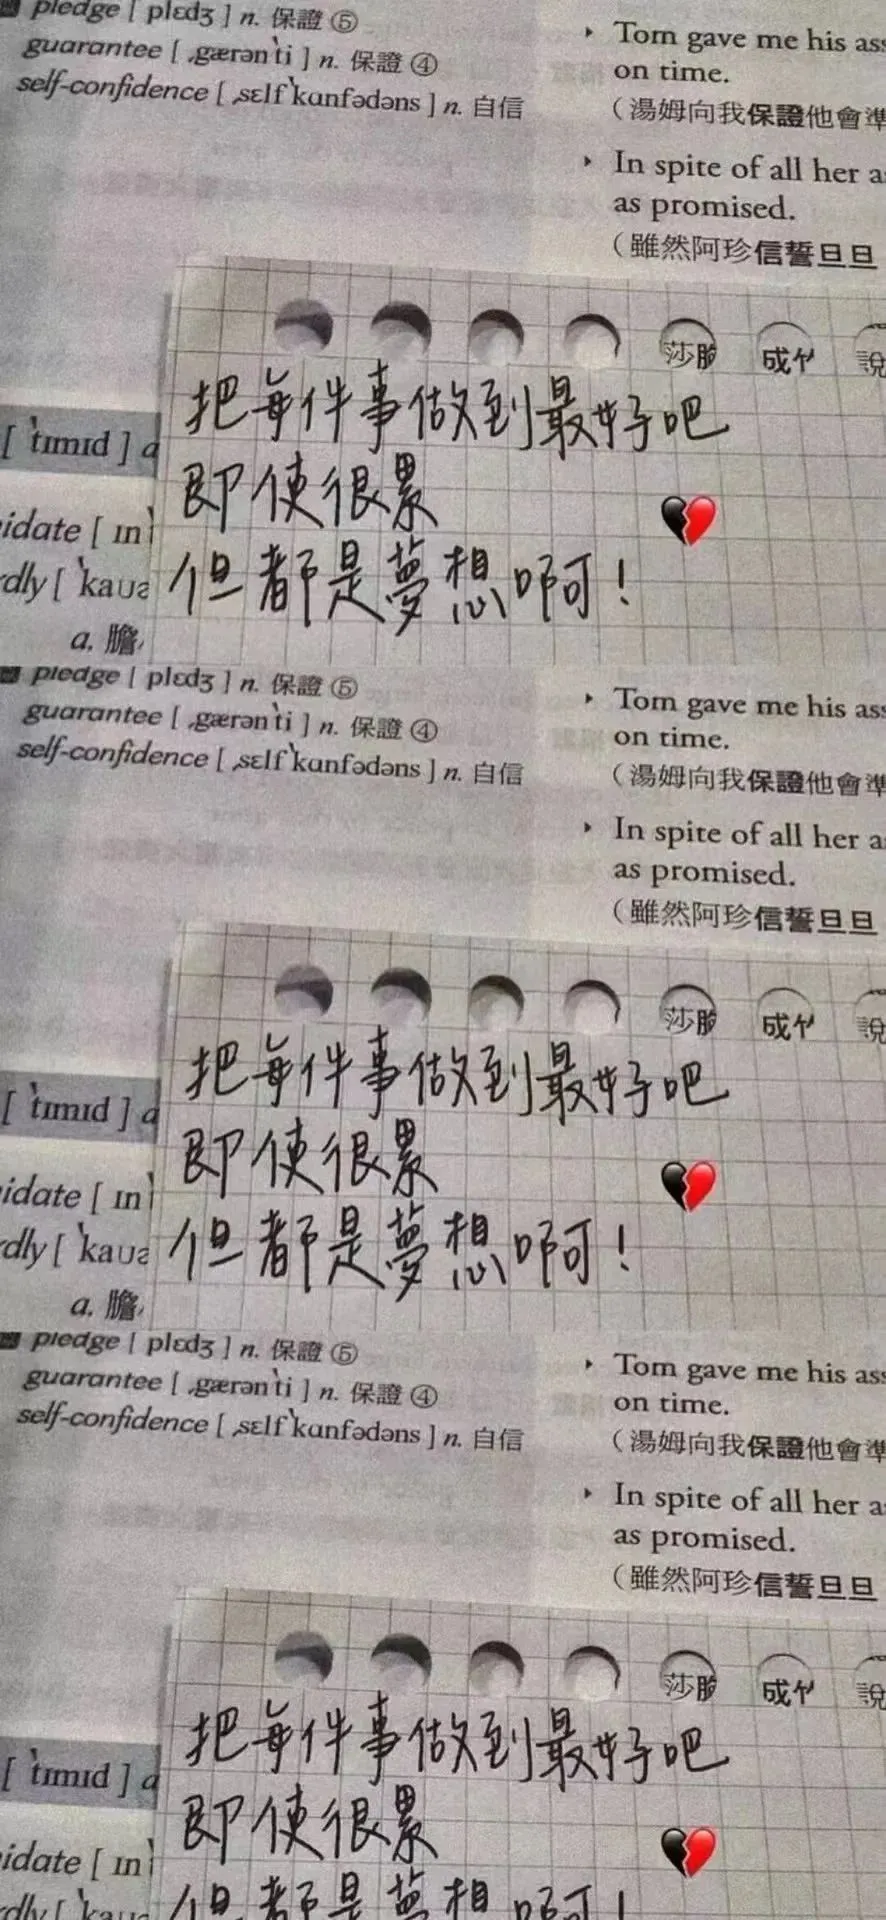 pledge [ plɛdʒ ] n. 保證 ⑤
guarantee [ ˌgærənˋti ] n. 保證 ④
self-confidence [ ˌsɛlfˋkɑnfədəns ] n. 自信
Tom gave me his ass
on time.
（湯姆向我保證他會準
In spite of all her as
as promised.
（雖然阿珍信誓旦旦
莎 成 說
把每件事做到最好吧
即使很累
但都是夢想啊！
[ ˋtɪmɪd ] a
idate [ ɪn
rdly [ ˋkaʊə
a. 膽
pledge [ plɛdʒ ] n. 保證 ⑤
guarantee [ ˌgærənˋti ] n. 保證 ④
self-confidence [ ˌsɛlfˋkɑnfədəns ] n. 自信
Tom gave me his ass
on time.
（湯姆向我保證他會準
In spite of all her as
as promised.
（雖然阿珍信誓旦旦
莎 成 說
把每件事做到最好吧
即使很累
但都是夢想啊！
[ ˋtɪmɪd ] a
idate [ ɪn
rdly [ ˋkaʊə
a. 膽
pledge [ plɛdʒ ] n. 保證 ⑤
guarantee [ ˌgærənˋti ] n. 保證 ④
self-confidence [ ˌsɛlfˋkɑnfədəns ] n. 自信
Tom gave me his ass
on time.
（湯姆向我保證他會準
In spite of all her as
as promised.
（雖然阿珍信誓旦旦
莎 成 說
把每件事做到最好吧
即使很累
但都是夢想啊！
[ ˋtɪmɪd ] a
idate [ ɪn
rdly [ ˋkaʊə